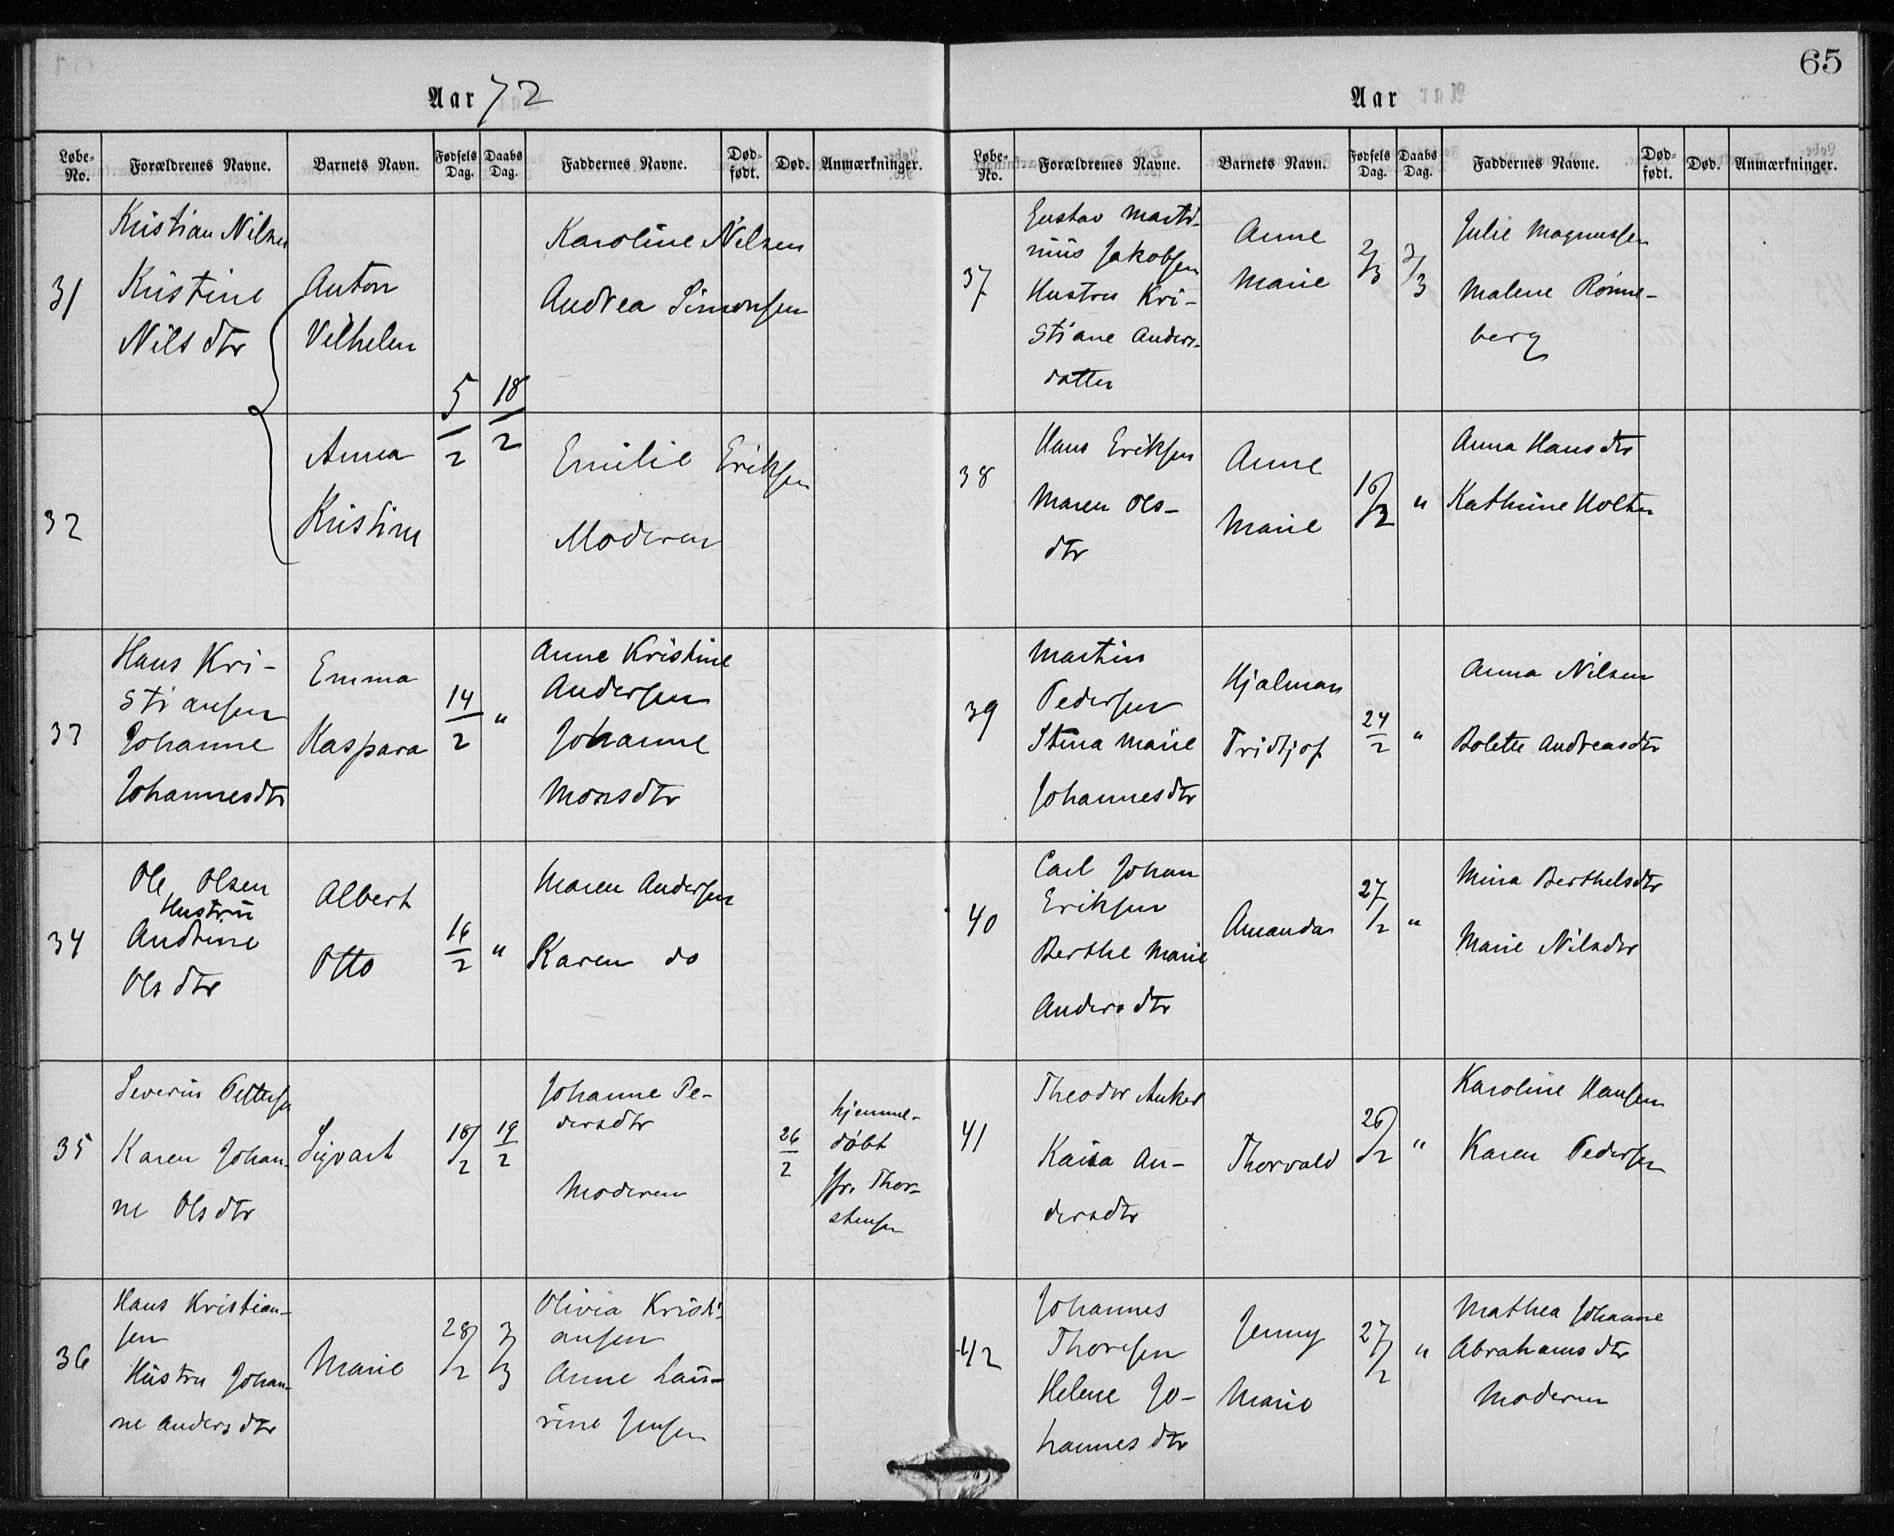 65
Aar 72
Løbe-No. Forældrenes Navne. Barnets Navn. Fødsels Dag. Daabs Dag. Faddernes Navne. Død-født. Død. Anmærkninger.
31
Kristian Nilsen
Kristine
Nilsdtr
Anton
Vilhelm
5/2 18/2
Karoline Nilsen
Andrea Simonsen
32
Anna
Kristine
Emilie Eriksen
Moderen
33
Hans Kri-
stiansen
Johanne
Johannesdtr
Emma
Kaspara
14/2 "
Anne Kristine
Andersen
Johanne
Monsdtr
34
Ole Olsen
Hustru
Andrine
Olsdtr
Albert
Otto
16/2 "
Maren Andersen
Karen do
35
Severin Pettersen
Karen Johan-
ne Olsdtr
Sigvart
18/2 19/2
Johanne Pe-
dersdtr
Moderen
26/2
hjemme-
døbt
Thor-
stensen
36
Hans Kristian-
sen
Hustru Johan-
ne Andersdtr
Marie
28/2 3/3
Olivia Kristi-
ansen
Anne Lau-
rine Jensen
Aar
Løbe-No. Forældrenes Navne. Barnets Navn. Fødsels Dag. Daabs Dag. Faddernes Navne. Død-født. Død. Anmærkninger.
37
Gustav Marti-
nius Jakobsen
Hustru Kri-
stiane Anders-
datter
Anne
Marie
2/3 3/3
Julie Magnussen
Malene Rønne-
berg
38
Hans Eriksen
Maren Ols-
dtr
Anne
Marie
16/2 "
Anna Hansdtr
Kathrine Holter
39
Martin
Pedersen
Stina Marie
Johannesdtr
Hjalmar
Fridtjof
24/2 "
Anna Nilsen
Bolette Andreasdtr
40
Carl Johan
Eriksen
Berthe Marie
Andersdtr
Amanda
27/2 "
Mina Berthelsdtr
Marie Nilsdtr
41
Theodor Anker
Kaisa An-
dersdtr
Thorvald
26/2 "
Karoline Hansen
Karen Pedersen
42
Johannes
Thoresen
Helene Jo-
hannesdtr
Jenny
Marie
27/2 "
Mathea Johanne
Abrahamsdtr
Moderen